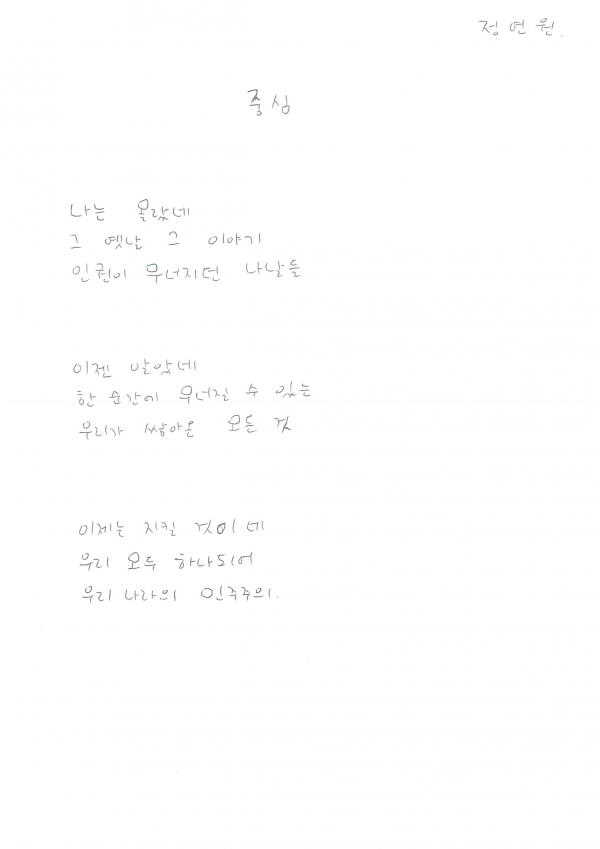 정연원.
중심
나는 몰랐네
그 옛날 그 이야기
인권이 무너지던 나날들
이젠 알았네
한 순간에 무너질 수 있는
우리가 쌓아온 모든 것
이제는 지킬 것이네
우리 모두 하나되어
우리 나라의 민주주의.